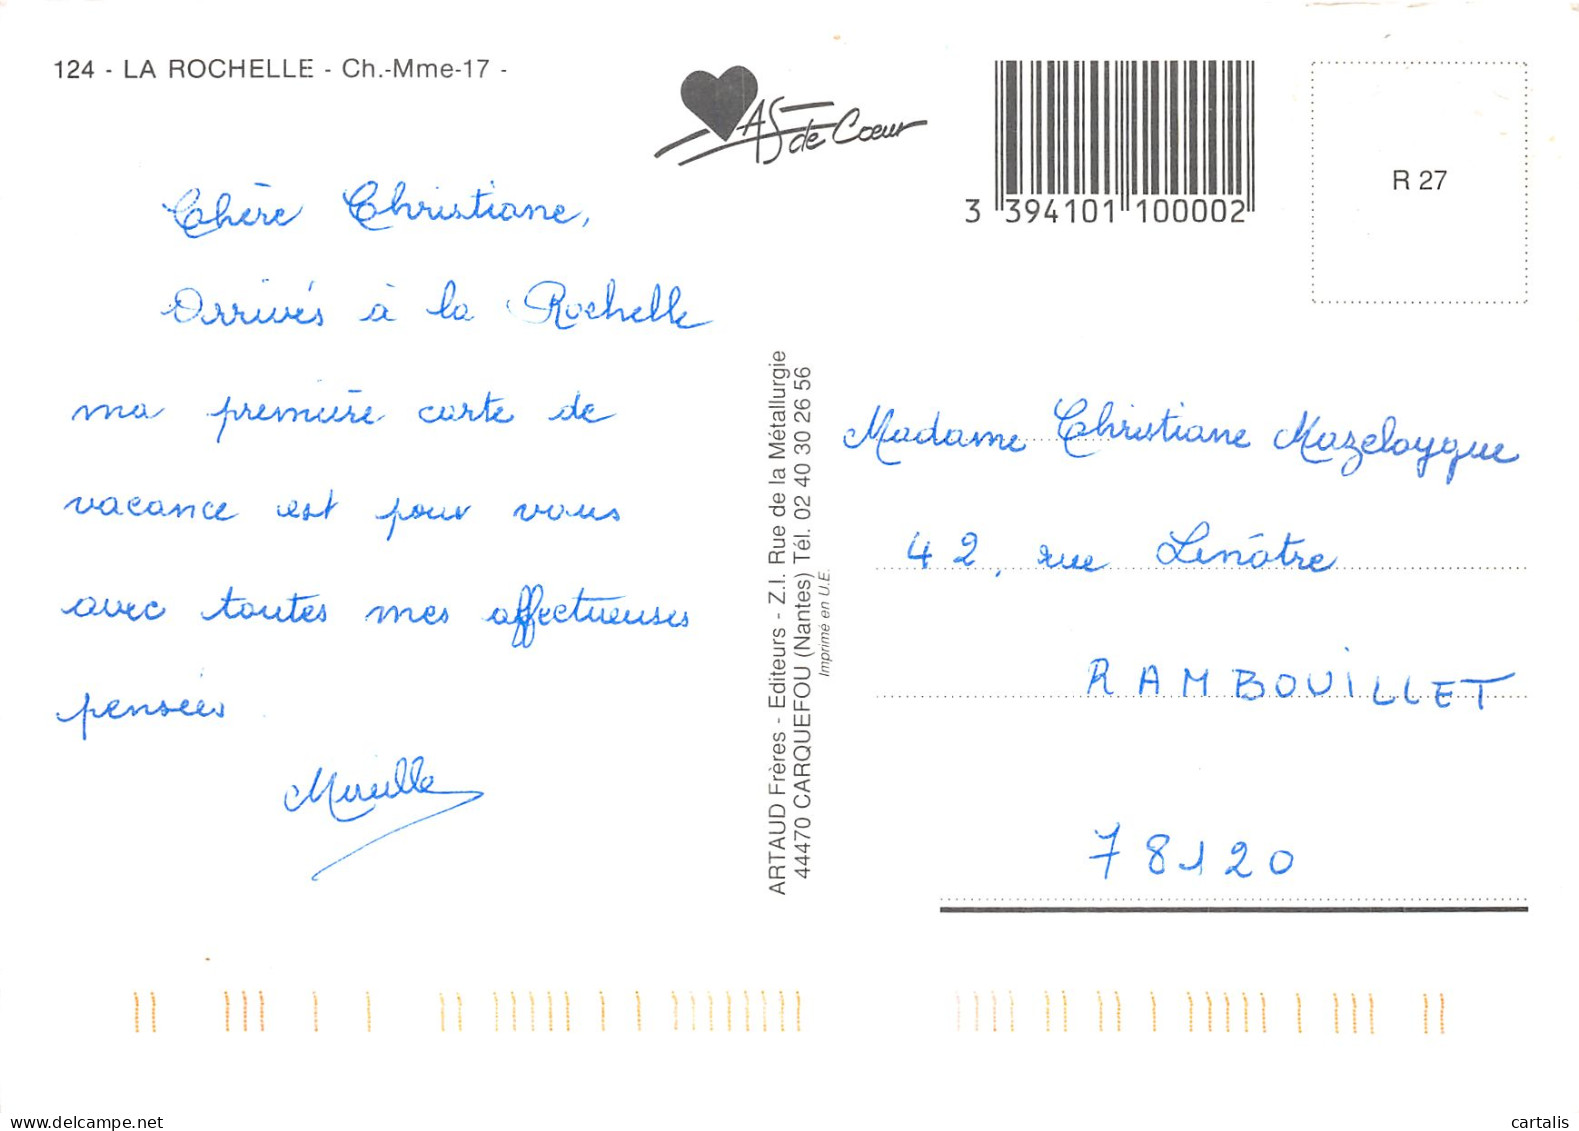 124 - LA ROCHELLE - Ch.-Mme-17 -
AS de Cœur
3 394101 100002
R 27
Chère Christiane,
Arrivés à la Rochelle
ma première carte de
vacance est pour vous
avec toutes mes affectueuses
pensées
Mireille
ARTAUD Frères - Editeurs - Z.I. Rue de la Métallurgie
44470 CARQUEFOU (Nantes) Tél. 02 40 30 26 56
Imprimé en U.E.
Madame Christiane Mazelaygue
42, rue Lenôtre
RAMBOUILLET
78120
cartalis
www.delcampe.net